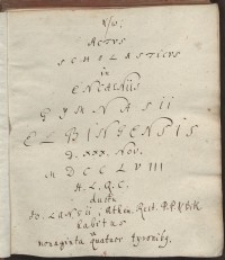 ACTVS
SCHOLASTICVS
in
ENCAENIIS
GYMNASII
ELBINGENSIS
d. XXX. Nov.
MDCCLVIII
H. L. Q. C.
ductu
JO. LANGII, Athen. Rect.
habitus
nonaginta quatuor tyronibg.